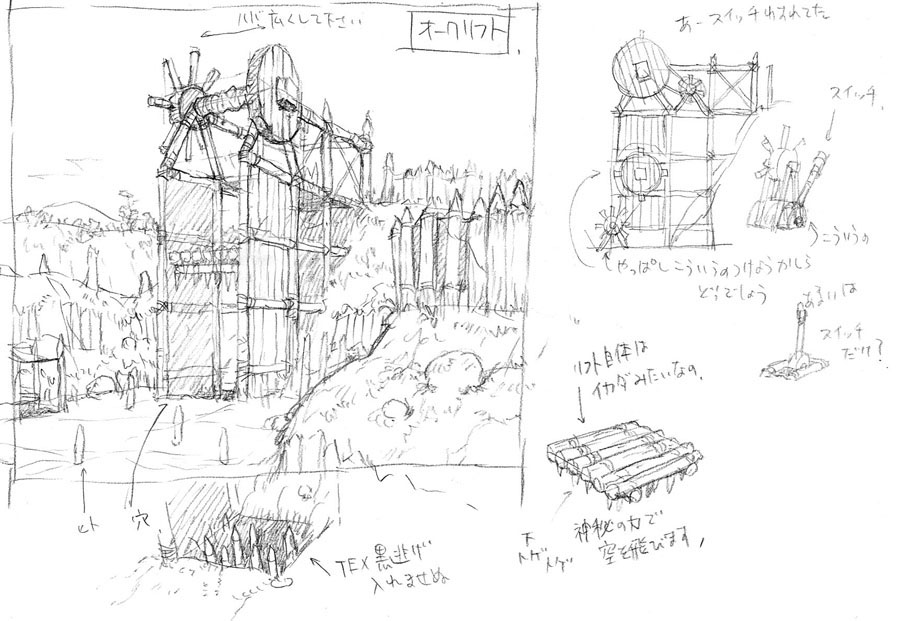 ハバ広くして下さい
オークリフト
あースイッチわすれてた
スイッチ,
こういうの
やっぱしこういうのつけようかしら
どうでしょう
あるいは
スイッチ
だけ?
リフト自体は
イカダみたいなの,
下
トゲトゲ
神秘の力で
空を飛びます,
ヒト
穴
TEX黒逃げ
入れませぬ